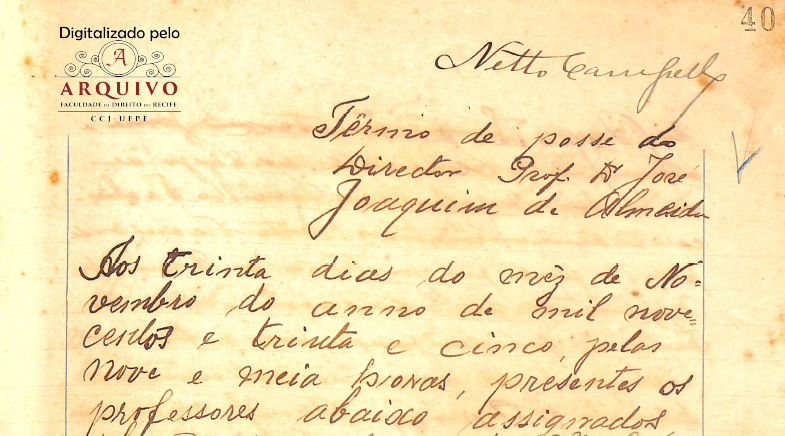 Digitalizado pelo
A
ARQUIVO
FACULDADE DE DIREITO DO RECIFE
CCJ-UFPE
40
Netto Campello
Têrmo de posse do
Director Prof. Dr José
Joaquim de Almeida
Aos trinta dias do mêz de No=
vembro do anno de mil nove=
centos e trinta e cinco, pelas
nove e meia horas, presentes os
professores abaixo assignados